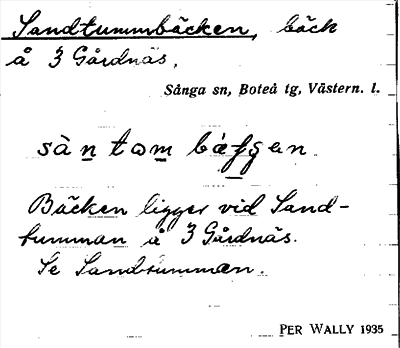 Sandtummbäcken, bäck
å 3 Gårdnäs.
Sånga sn, Boteå tg, Västern. l.
Bäcken ligger vid Sand-
tumman å 3 Gårdnäs.
Se Sandtumman.
PER WALLY 1935